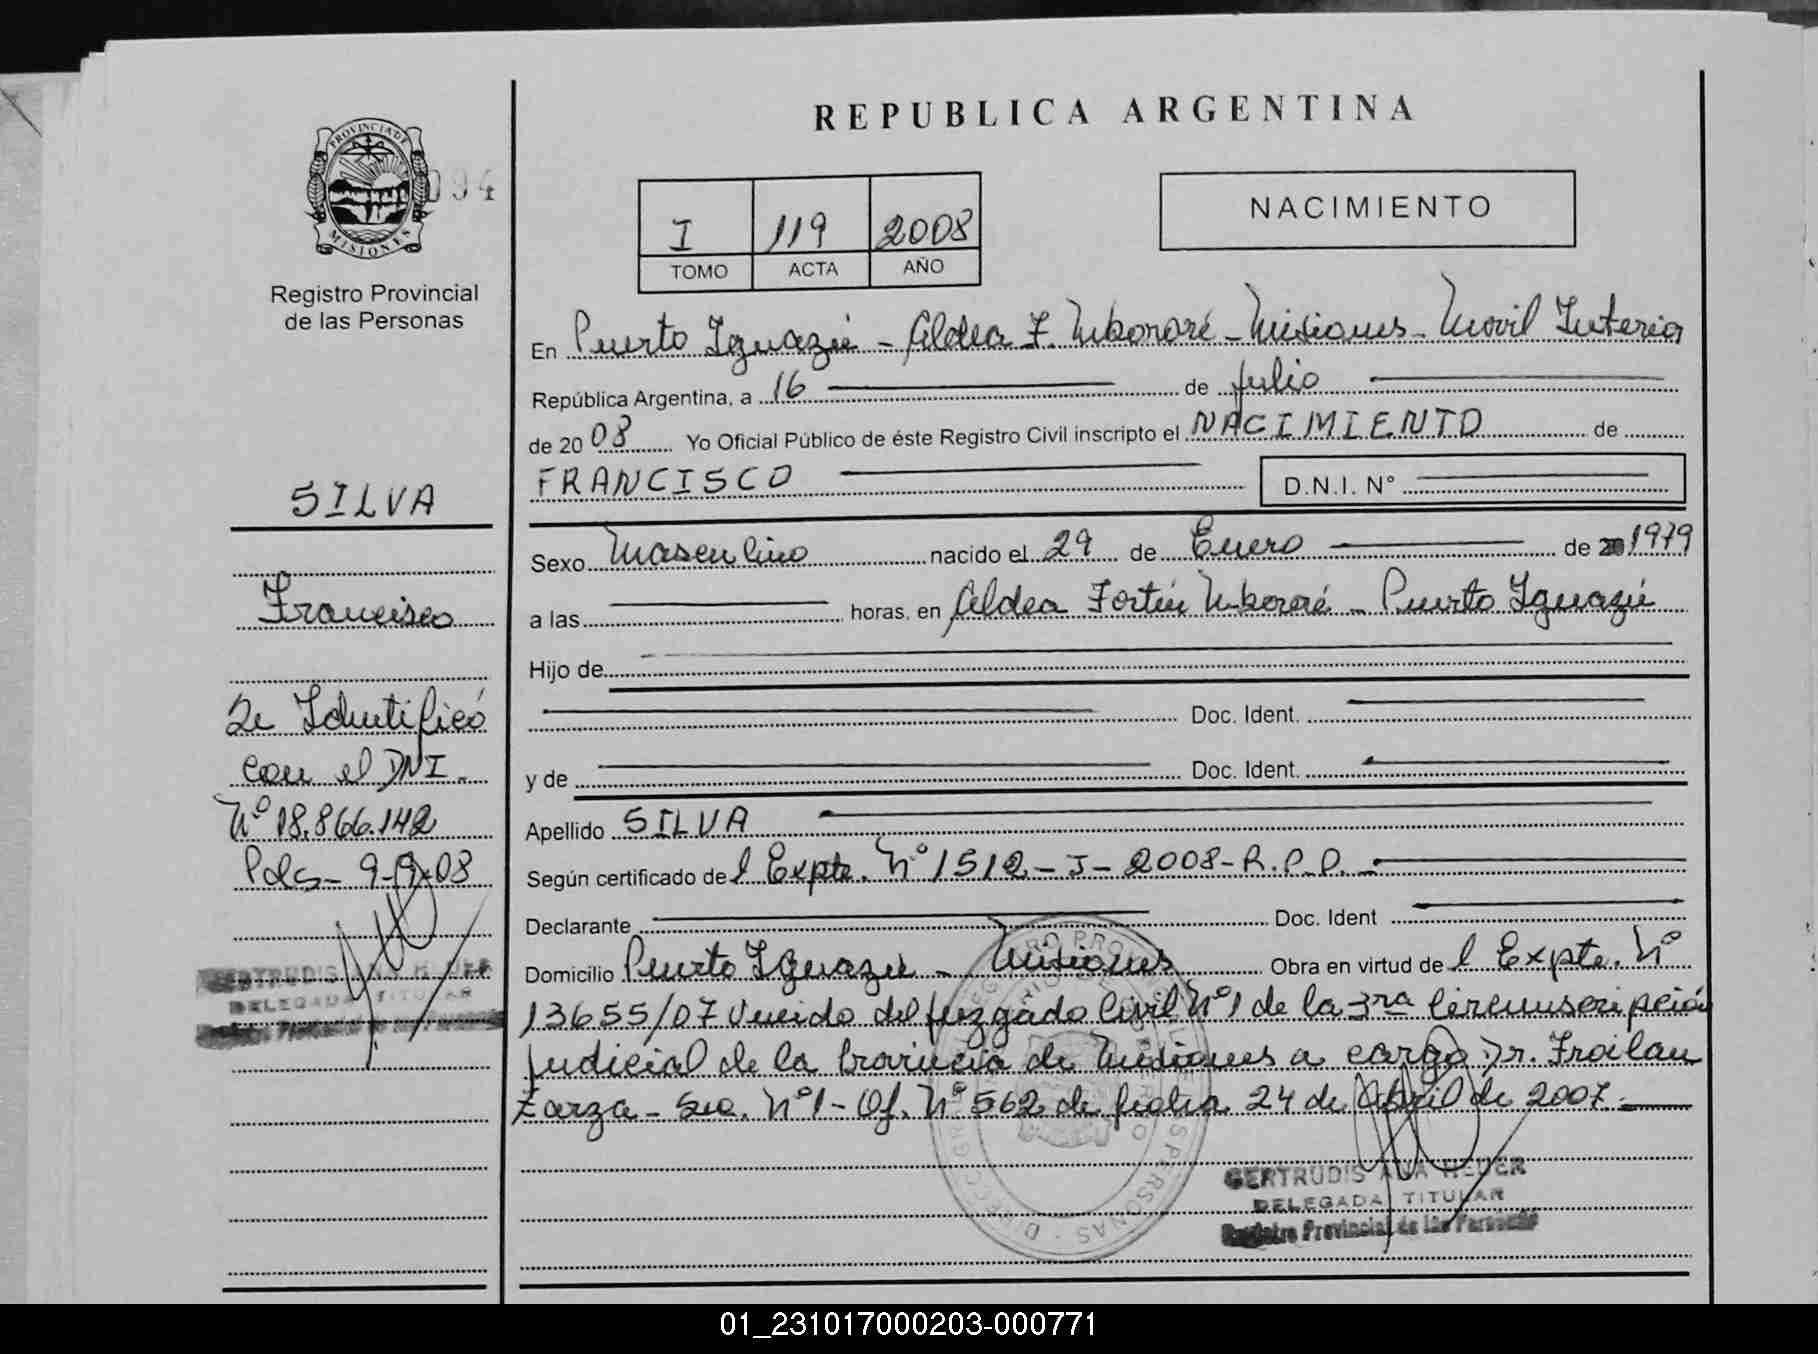 REPUBLICA ARGENTINA
PROVINCIA DE
MISIONES
094
Registro Provincial
de las Personas
I 119 2008
TOMO ACTA AÑO
NACIMIENTO
En Puerto Iguazú - Aldea F. Mbororé - Misiones - Movil Interior
República Argentina, a 16 de Julio
de 2008 Yo Oficial Público de éste Registro Civil inscripto el NACIMIENTO de
FRANCISCO D.N.I. N°
SILVA
Francisco
Se Identificó
con el DNI.
N° 18.866.142
Pds - 9-9-08
GERTRUDIS ANA HEUER
DELEGADA TITULAR
Registro Provincial de las Personas
Sexo Masculino nacido el 29 de Enero de 20 1979
a las horas, en Aldea Fortín Mbororé - Puerto Iguazú
Hijo de
Doc. Ident.
y de Doc. Ident.
Apellido SILVA
Según certificado del Expte. N° 1512 - J - 2008 - R.P.P. -
Declarante Doc. Ident
Domicilio Puerto Iguazú - Misiones Obra en virtud del Expte. N°
13655/07 Venido del Juzgado Civil N°1 de la 3ra Circunscripción
Judicial de la Provincia de Misiones a cargo Dr. Froilan
Zarza - Sec. N°1 - Of. N° 562 de fecha 24 de Abril de 2007.
GERTRUDIS ANA HEUER
DELEGADA TITULAR
Registro Provincial de las Personas
01_231017000203-000771